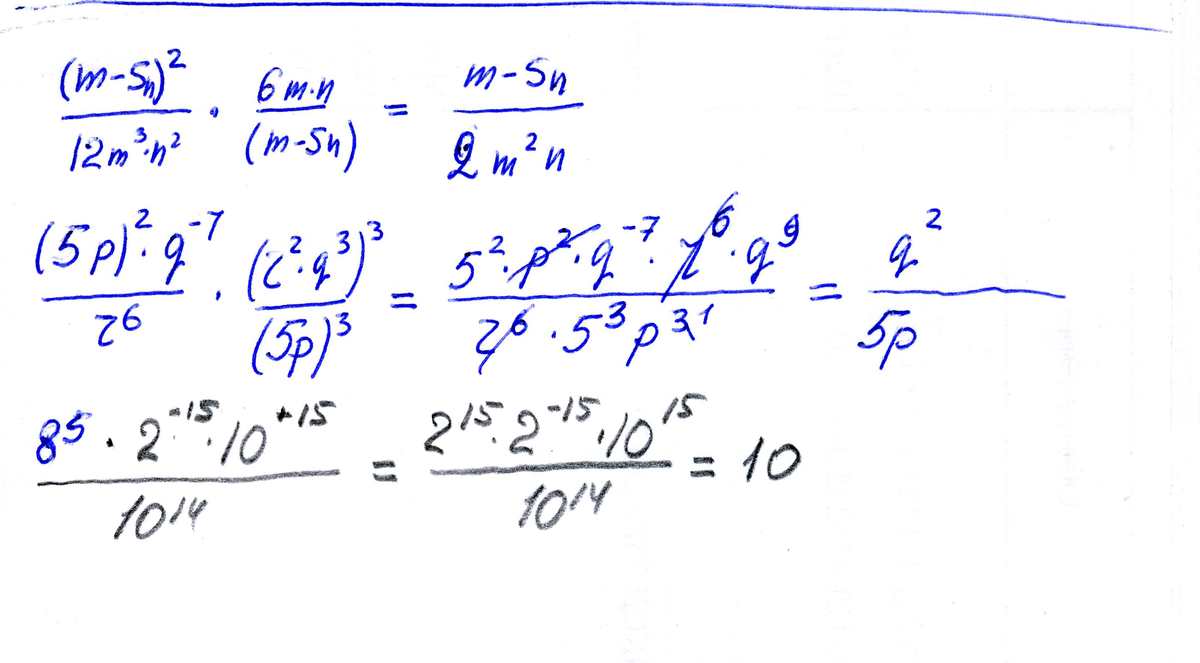 (m-5n)²/12m³·n² · 6m·n/(m-5n) = m-5n/2m²n
(5p)²·q⁻⁷/r⁶ · (r²·q³)³/(5p)³ = 5²·p²·q⁻⁷·r⁶·q⁹/r⁶·5³p³ ¹ = q²/5p
8⁵·2⁻¹⁵·10⁺¹⁵/10¹⁴ = 2¹⁵·2⁻¹⁵·10¹⁵/10¹⁴ = 10